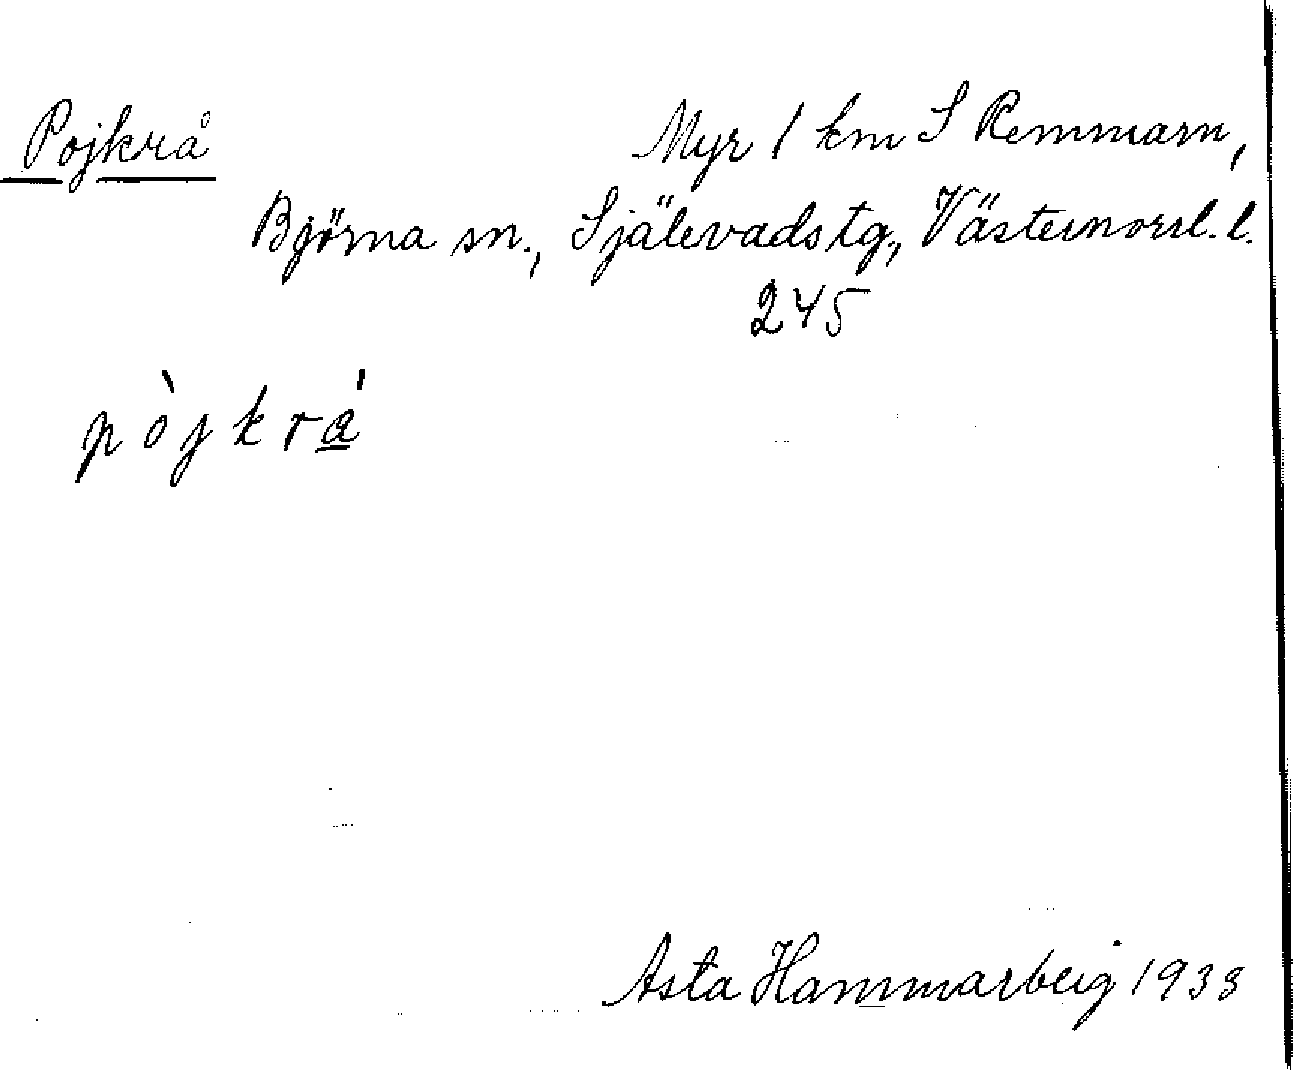 Pojkrå Myr 1 km S Remmarn,
Björna sn., Själevads tg., Västernorrl. l.
245
pòjkrá
Asta Hammarberg 1938